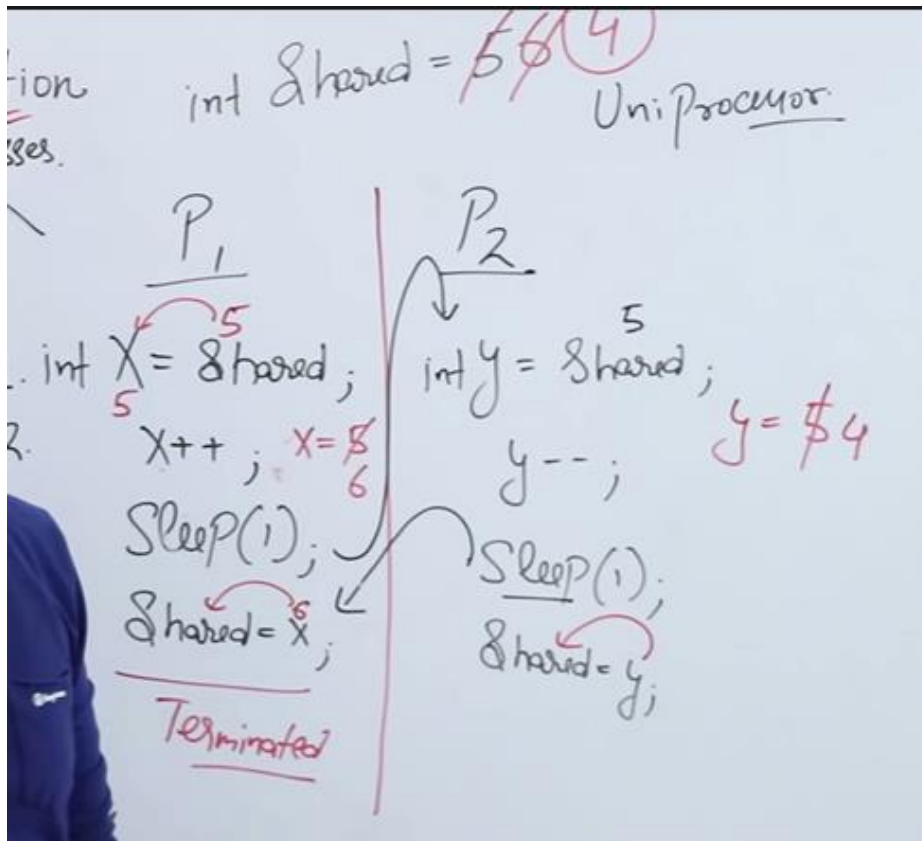 tion
int Shared = 5 6 4
UniProcessor
sses.
P1
5
1. int X = Shared;
5
2. X++; X = 5
6
Sleep(1);
6
Shared = X;
Terminated
P2
5
int y = Shared;
y--; y = 5 4
Sleep(1);
Shared = y;